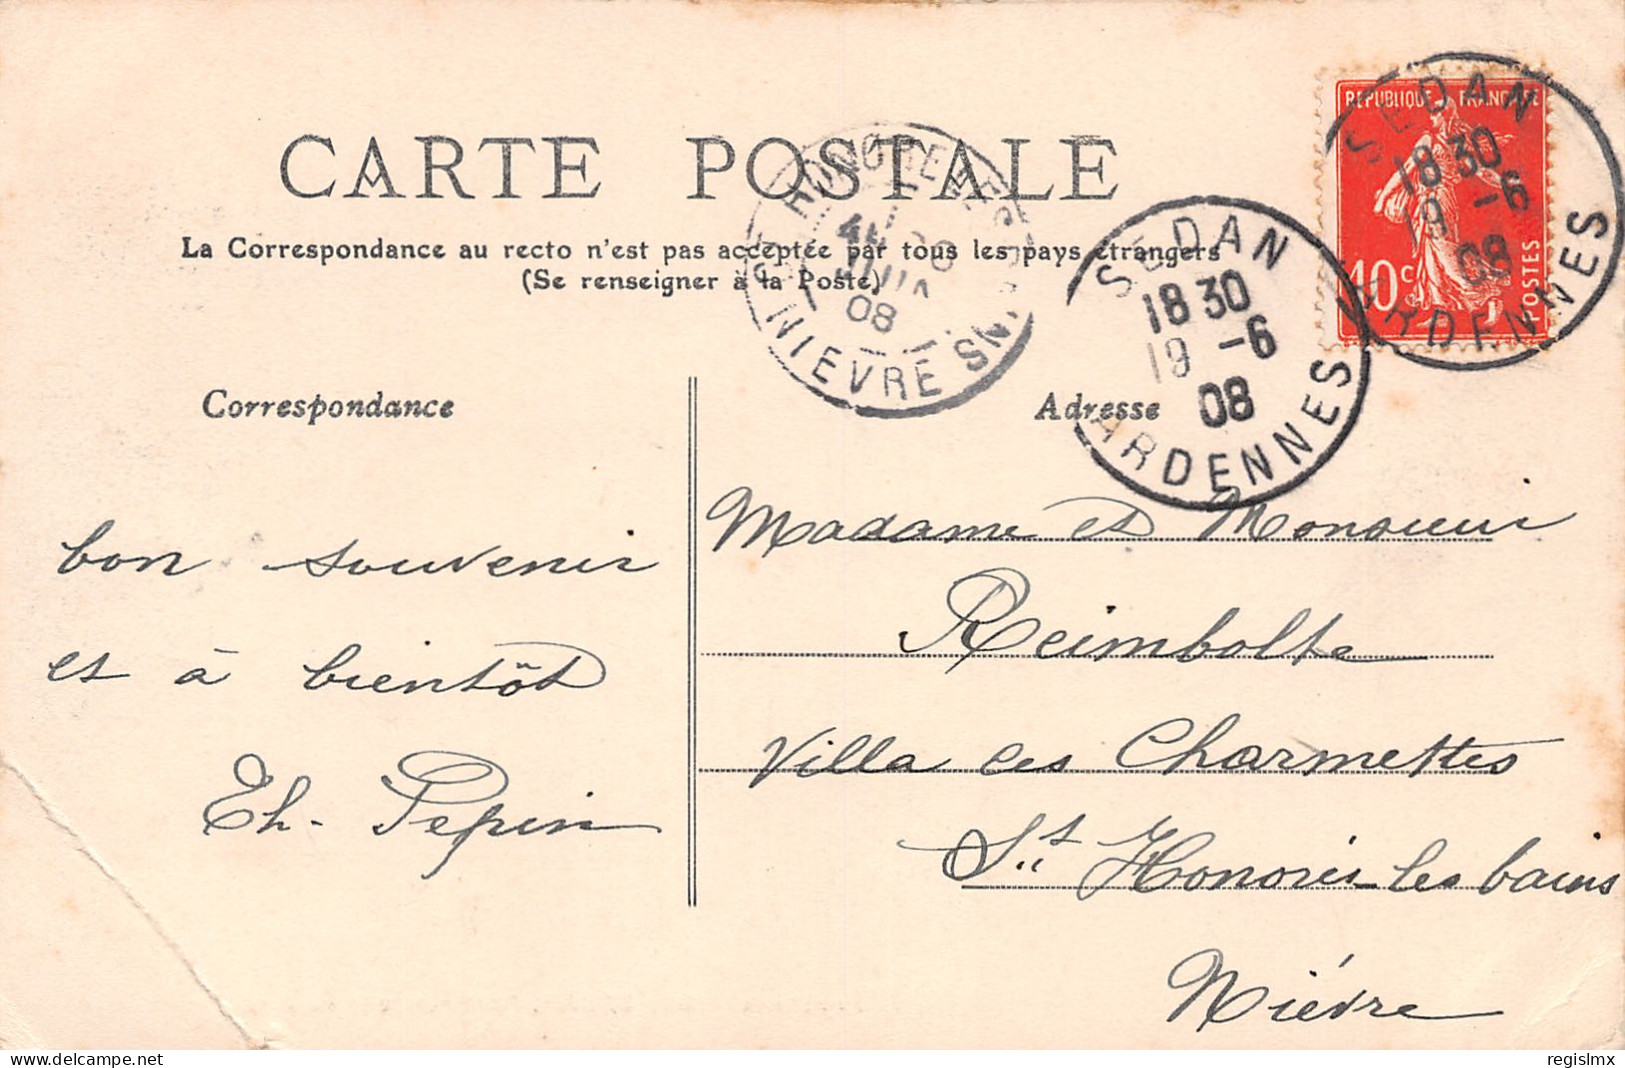 CARTE POSTALE
La Correspondance au recto n'est pas acceptée par tous les pays étrangers
(Se renseigner à la Poste)
REPUBLIQUE FRANÇAISE
10c POSTES
SEDAN
18 30
19 -6
08
ARDENNES
SEDAN
18 30
19 -6
08
ARDENNES
08
NIEVRE
Correspondance
bon souvenir
et à bientôt
Eh. Pepin
Adresse
Madame et Monsieur
Reimbolte
Villa les Charmettes
St Honoré-les bains
Nièvre
delcampe.net
regislmx